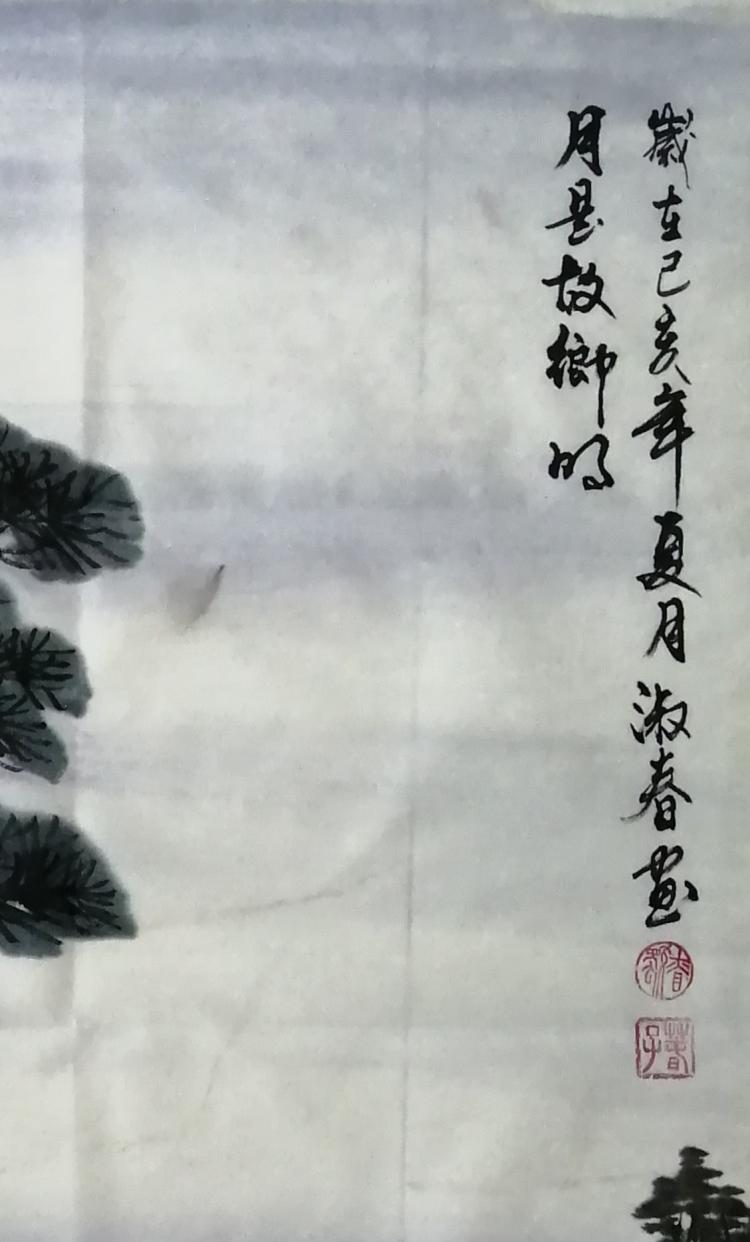 歲在己亥年夏月淑春畫
月是故鄉明